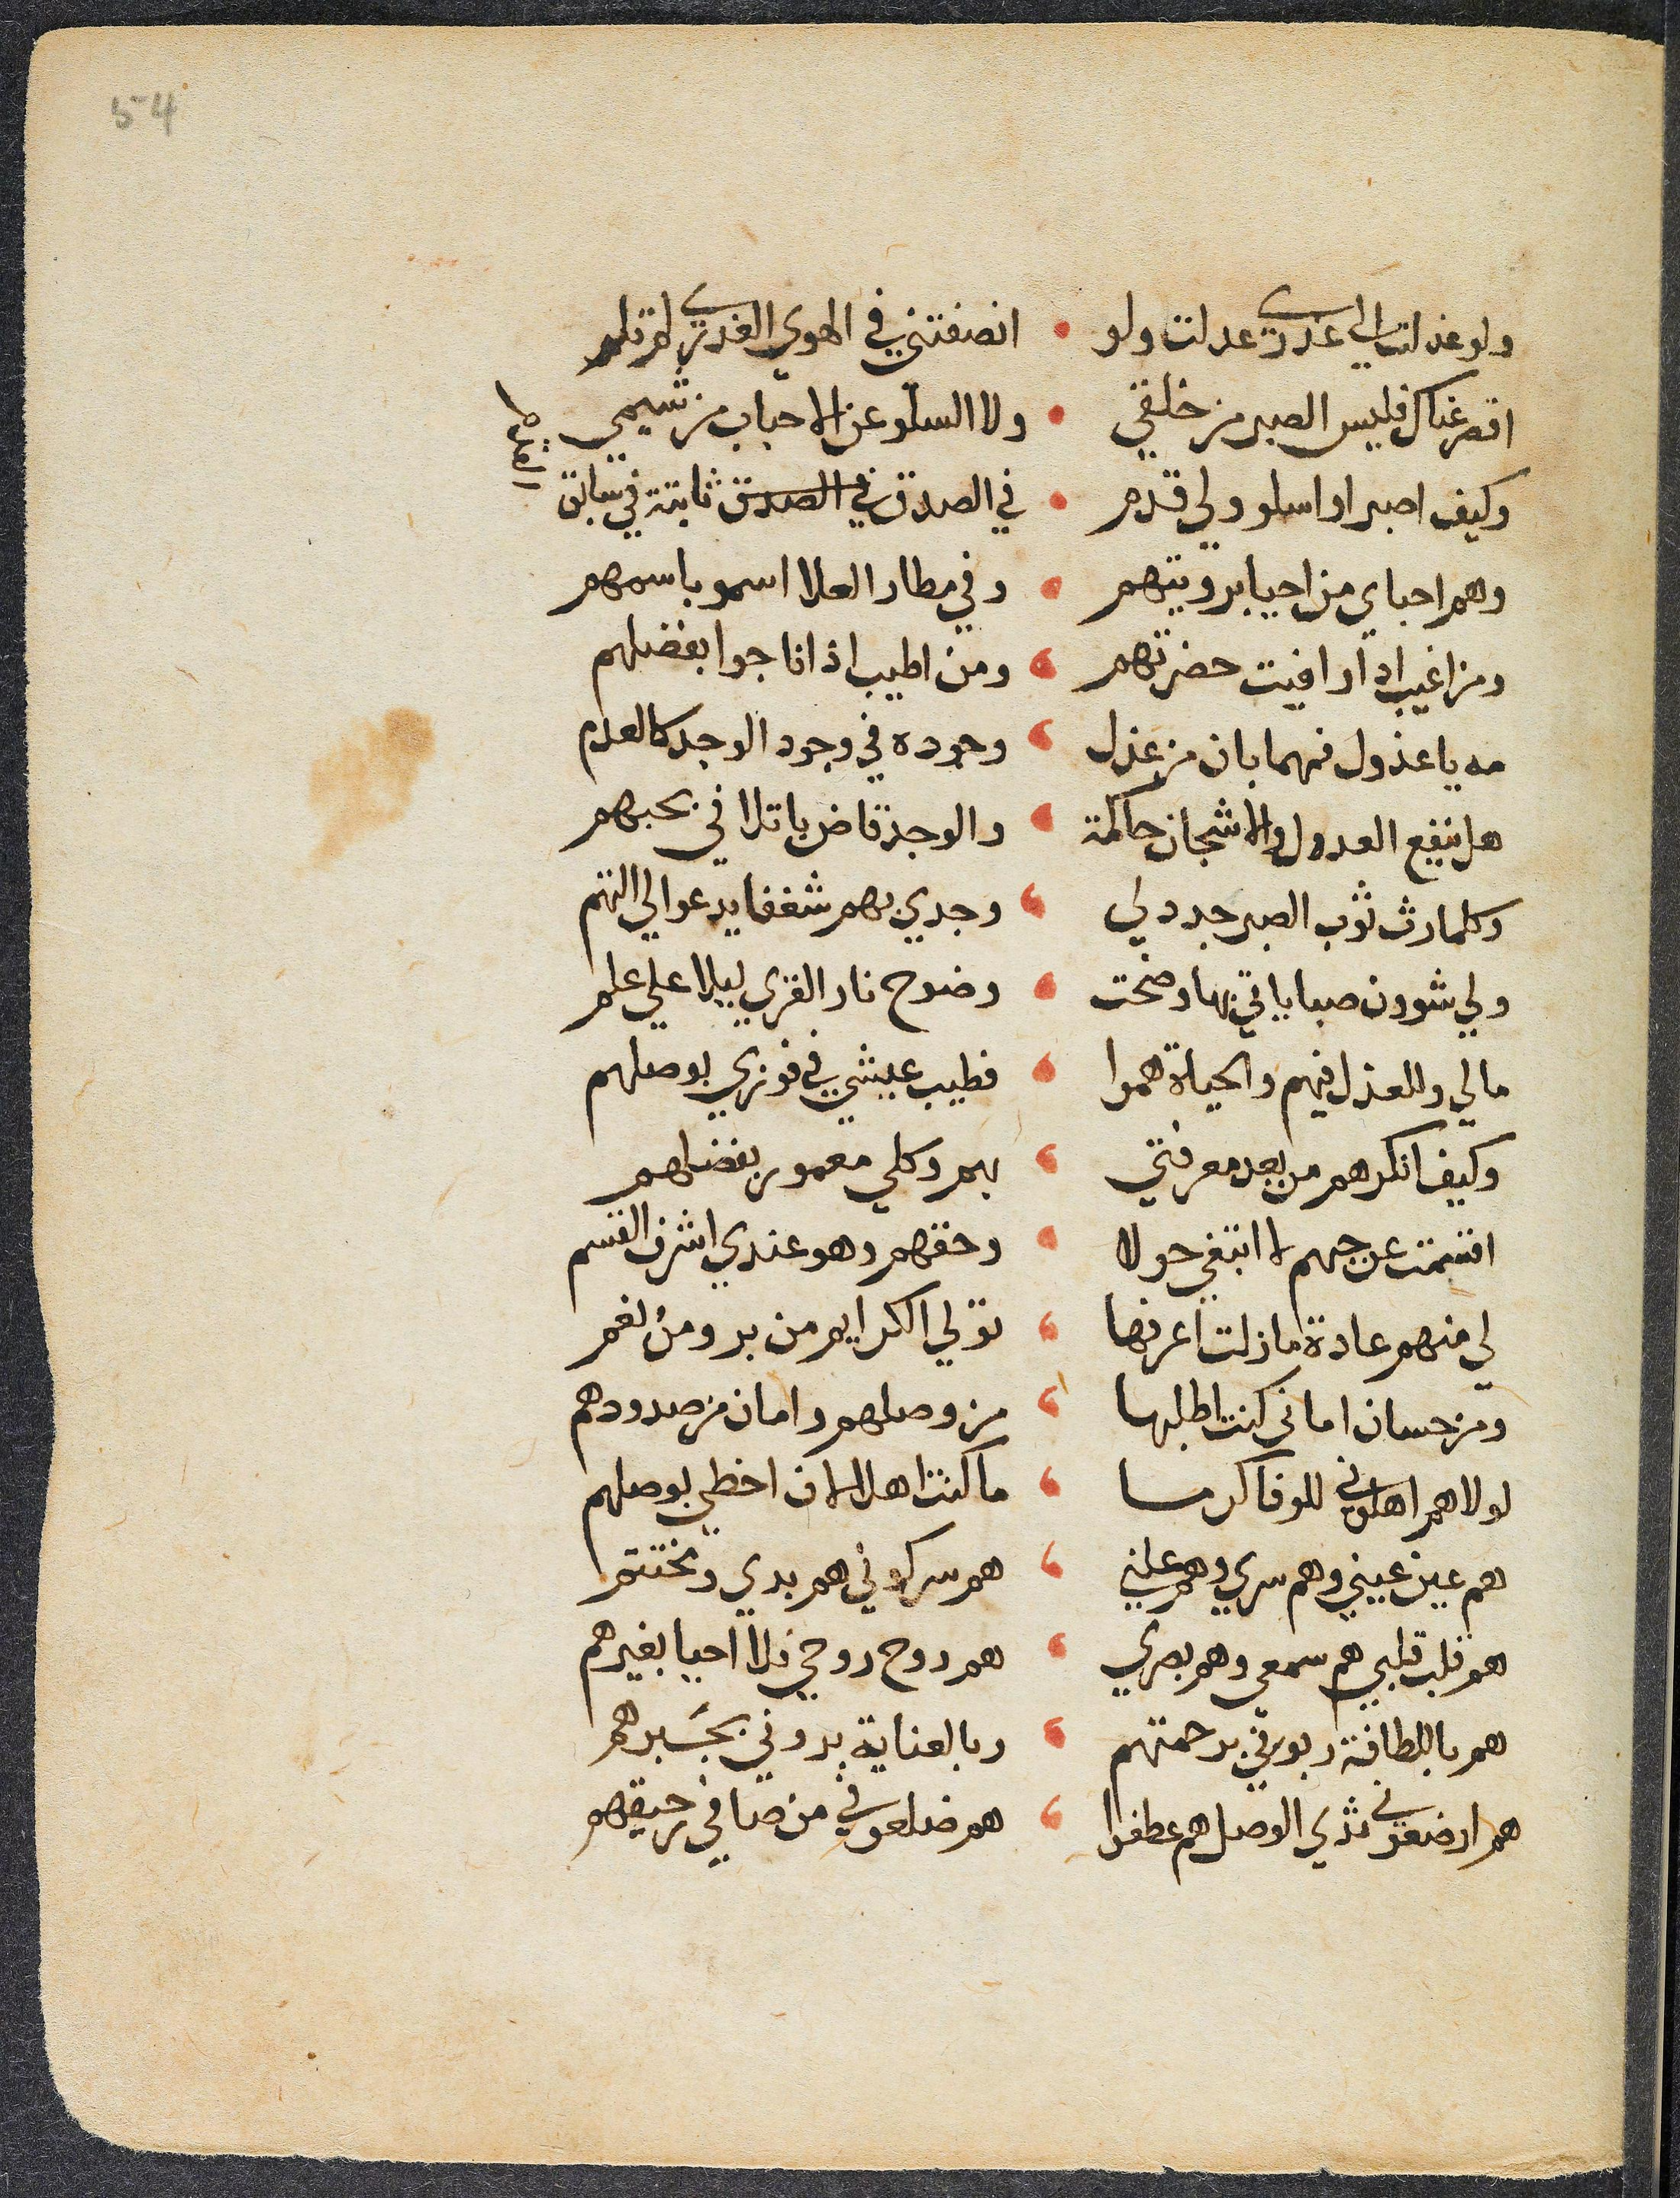 54
ولو عدلت الي عذري عدلت ولو • انصفتني في الهوي العذري لم تلم
اقصر عناك فليس الصبر من خلقي • ولا السلو عن الاحباب من شيمي
وكيف اصبر او اسلو ولي قدم • في الصدق في الصدق ثابتة في سابق
القدم
وهم احباي من احيا برويتهم • وفي مطار العلا اسمو باسمهم
ومن اغيب اذا وافيت حضرتهم • ومن اطيب اذا ناجوا بفضلهم
مه يا عذول فمهما بان من عذل • وجوده في وجود الوجد كالعدم
هل ينفع العدول والاشجان حاكمة • والوجد قاض باتلافي بحبهم
وكلما رث ثوب الصبر جدد لي • وجدي بهم شغفا يدعوا الي التهم
ولي شوون صباباتي بها وضحت • وضوح نار القري ليلا علي علم
مالي وللعذل فيهم والحياة هموا • فطيب عيشي في فوزي بوصلهم
وكيف انكرهم من بعد معرفتي • بهم وكلي معمور بفضلهم
اقسمت عن حبهم لا ابتغي حولا • وحقهم وهو عندي اشرف القسم
لي منهم عادة ما زلت اعرفها • تولي الكرايم من بر ومن نعم
ومن حسان اماني كنت اطلبها • من وصلهم وامان من صدودهم
لولاهم اهلوني للوفا كرما • ما كنت اهلا لان احظي بوصلهم
هم عين عيني وهم سري وهم علني • هم سر كوني هم بدي ومختتم
هم قلب قلبي هم سمعي وهم بصري • هم روح روحي فلا احيا بغيرهم
هم باللطافة ربوني برحمتهم • وبالعناية بروني بجبرهم
هم ارضعوني ثدي الوصل هم عطفوا • هم ضلعوني من صافي رحيقهم